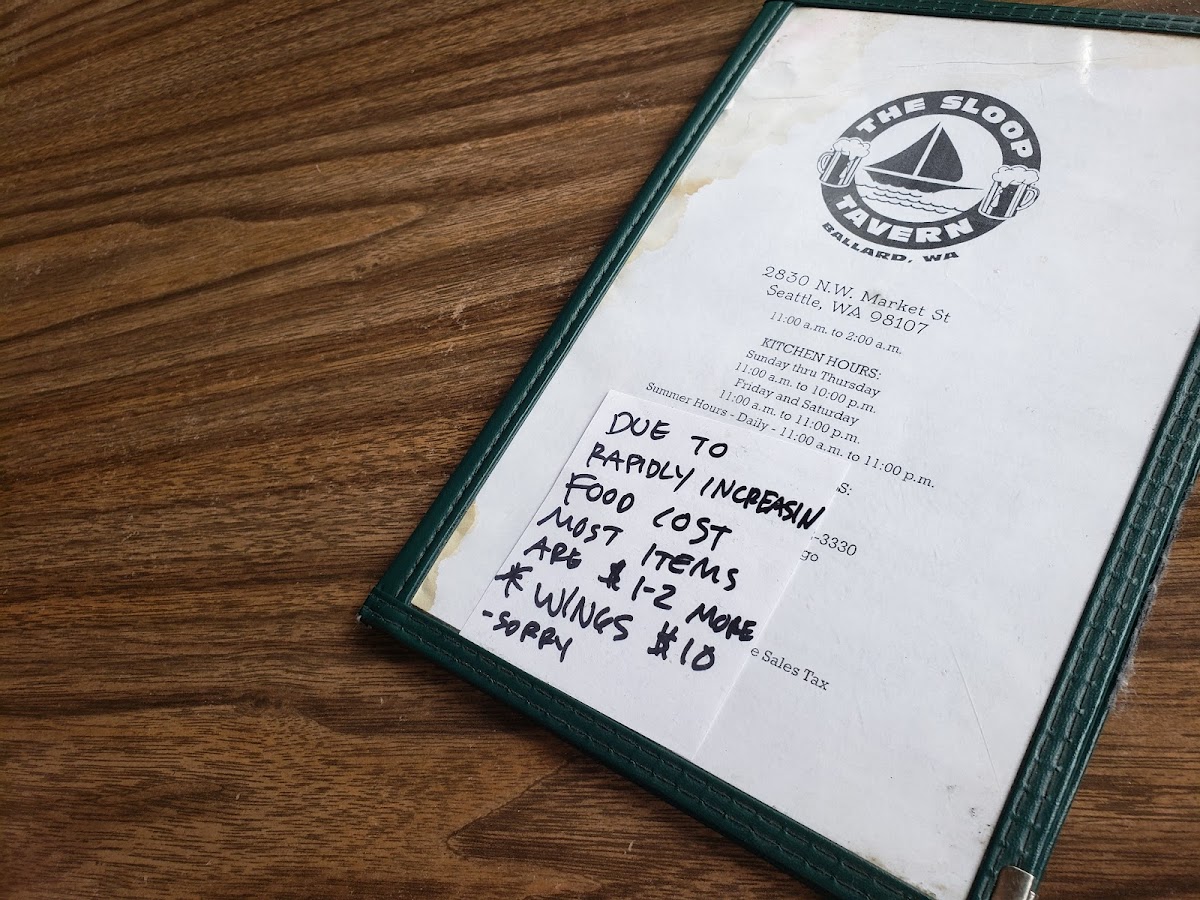 THE SLOOP
TAVERN
BALLARD, WA
2830 N.W. Market St
Seattle, WA 98107
11:00 a.m. to 2:00 a.m.
KITCHEN HOURS:
Sunday thru Thursday
11:00 a.m. to 10:00 p.m.
Friday and Saturday
11:00 a.m. to 11:00 p.m.
Summer Hours - Daily - 11:00 a.m. to 11:00 p.m.
S:
-3330
go
e Sales Tax
DUE TO
RAPIDLY INCREASIN
FOOD COST
MOST ITEMS
ARE $1-2 MORE
* WINGS $10
-SORRY